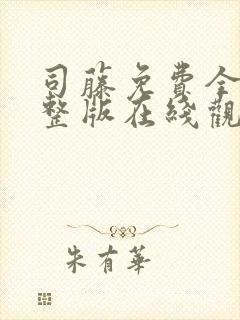 司藤免費全
整版在綫觀
朱有華